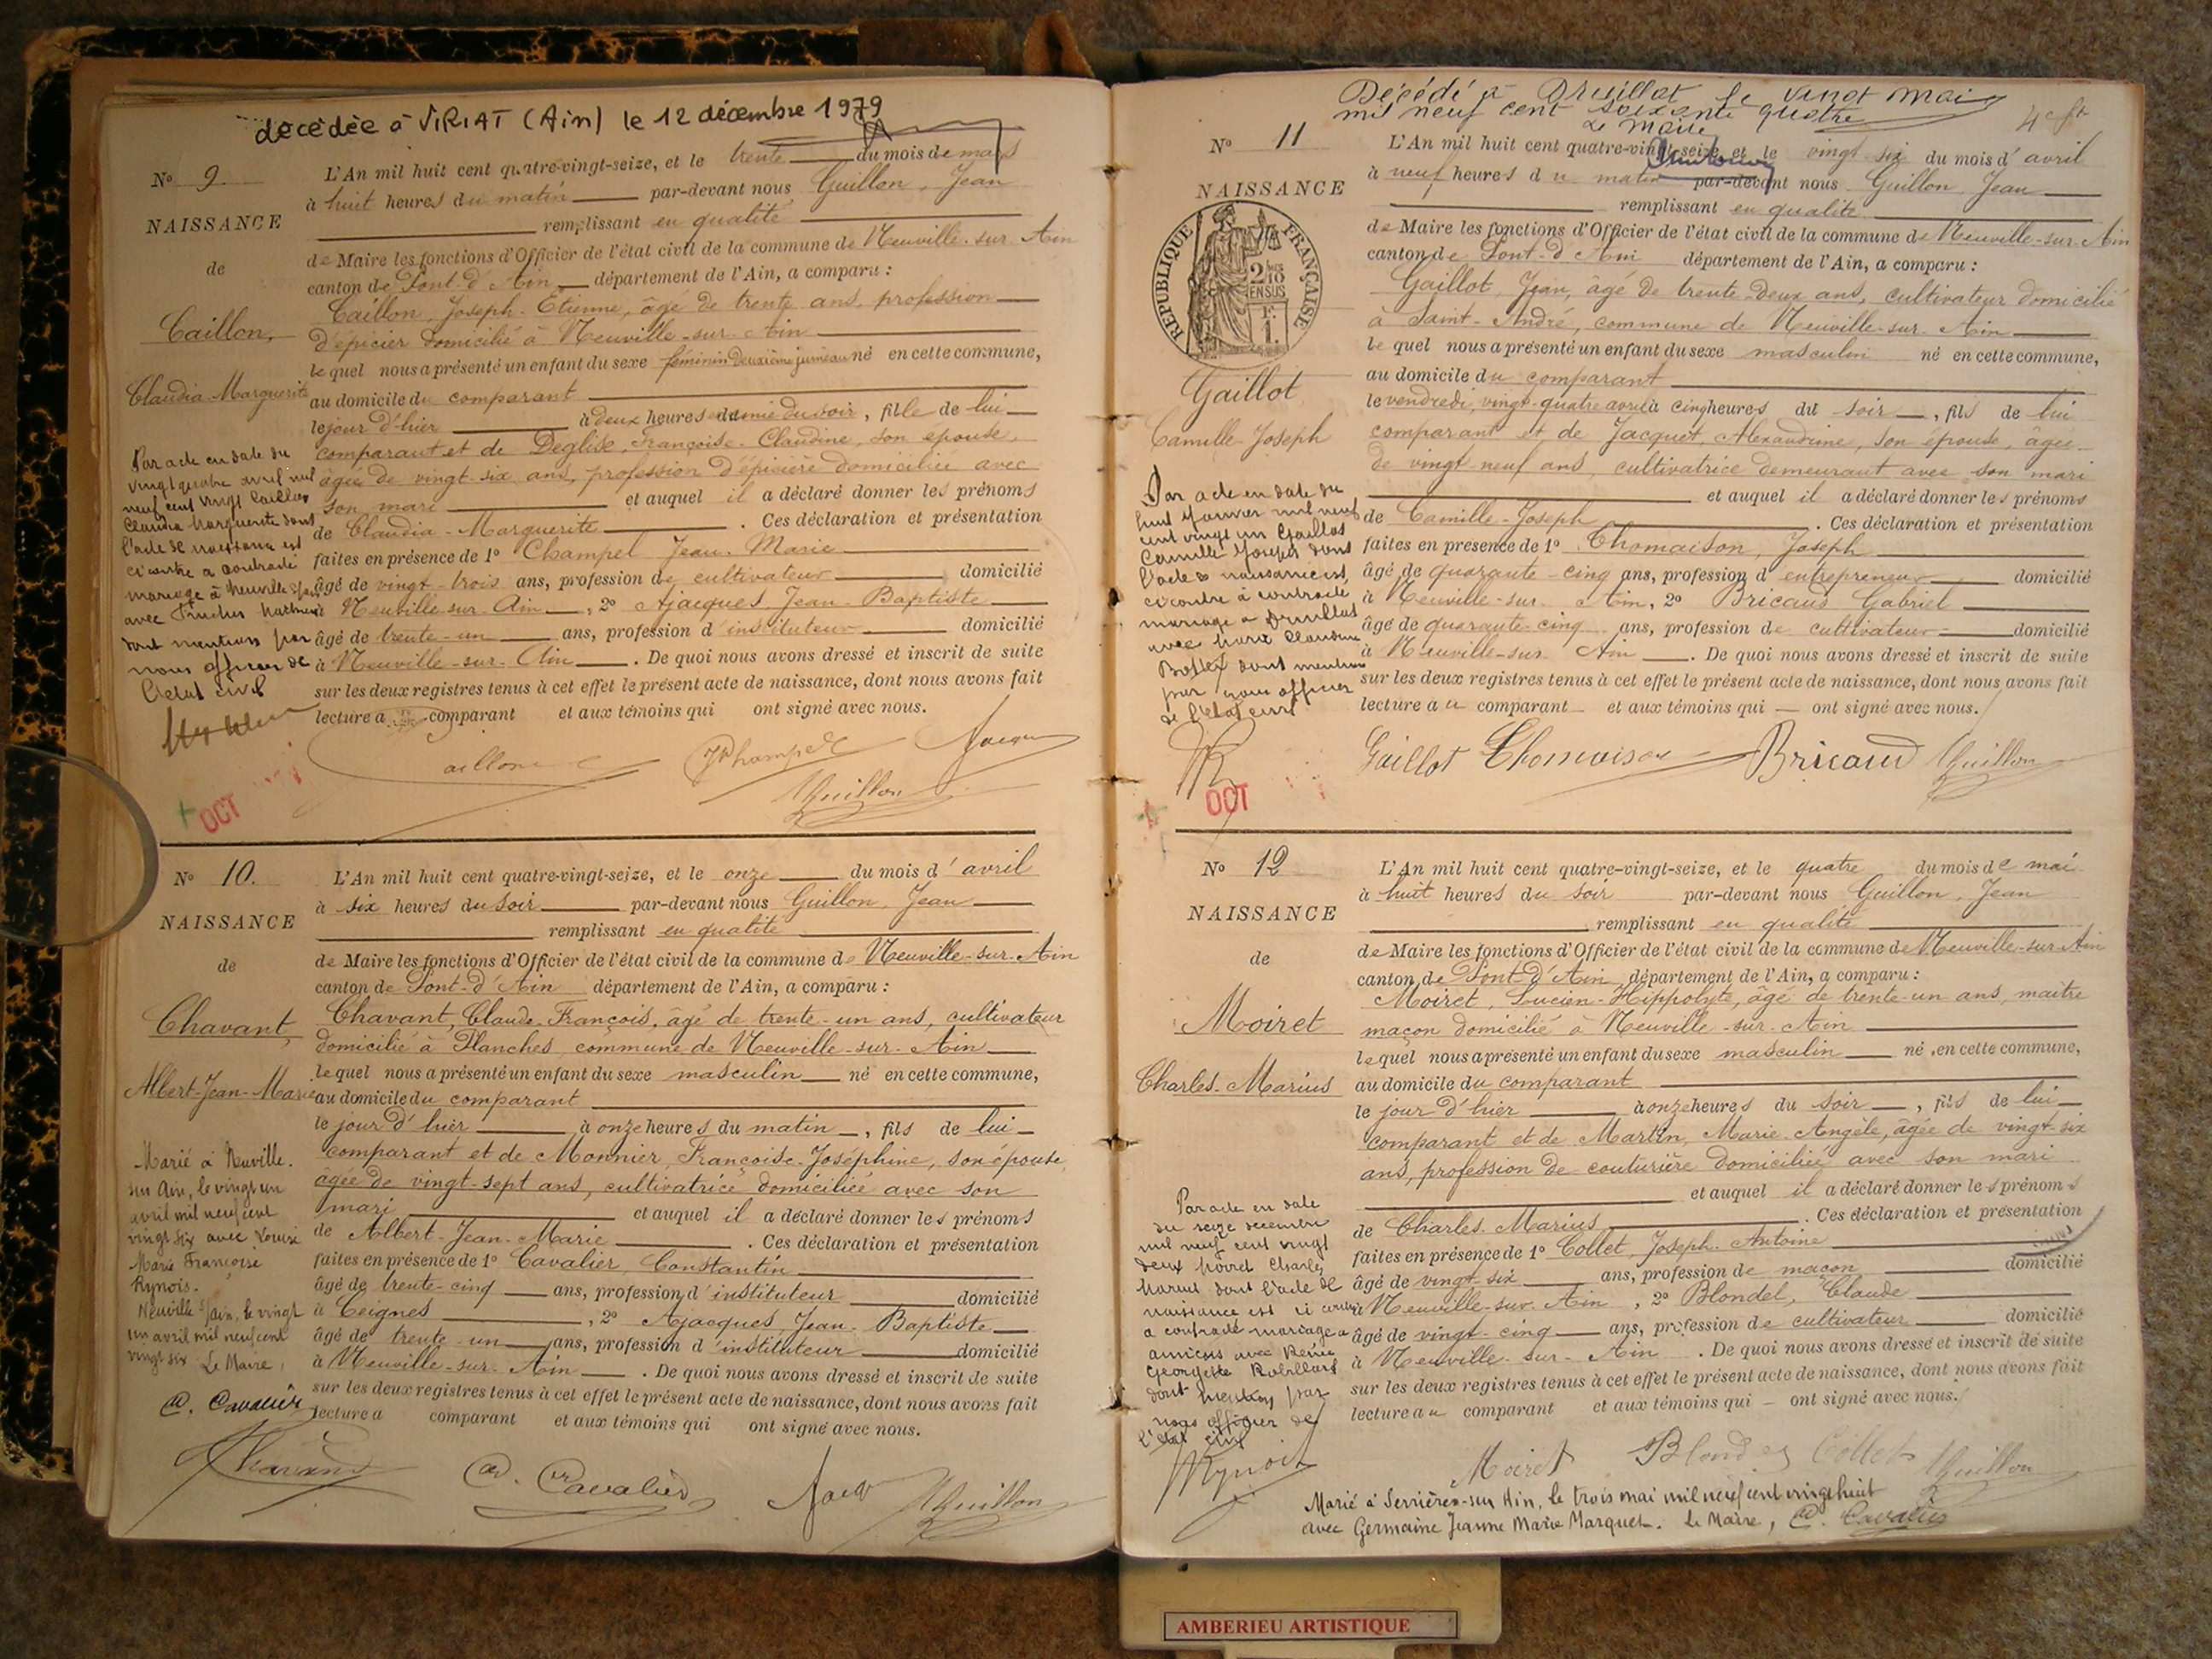 décédée à VIRIAT (Ain) le 12 décembre 1979
N° 9.
NAISSANCE
de
Caillon,
Claudia Marguerite
L'An mil huit cent quatre-vingt-seize, et le trente du mois de mars
à huit heures du matin par-devant nous Guillon, Jean
remplissant en qualité
de Maire les fonctions d'Officier de l'état civil de la commune de Neuville-sur-Ain
canton de Pont-d'Ain département de l'Ain, a comparu :
Caillon, Joseph-Étienne, âgé de trente ans, profession
d'épicier domicilié à Neuville-sur-Ain
lequel nous a présenté un enfant du sexe féminin Deuxième jumeau né en cette commune,
au domicile du comparant
le jour d'hier à deux heures et demie du soir, fille de lui
comparant et de Deglise, Françoise-Claudine, son épouse,
âgée de vingt-six ans, profession d'épicière domiciliée avec
son mari et auquel il a déclaré donner les prénoms
de Claudia-Marguerite. Ces déclaration et présentation
faites en présence de 1° Champel Jean-Marie
âgé de vingt-trois ans, profession de cultivateur domicilié
à Neuville-sur-Ain, 2° Ajacques Jean-Baptiste
âgé de trente-un ans, profession d'instituteur domicilié
à Neuville-sur-Ain. De quoi nous avons dressé et inscrit de suite
sur les deux registres tenus à cet effet le présent acte de naissance, dont nous avons fait
lecture a comparant et aux témoins qui ont signé avec nous.
Par acte en date du
vingt quatre avril mil
neuf cent vingt Caillon
Claudia Marguerite dont
l'acte de naissance est
ci contre a contracté
mariage à Neuville s/Ain
avec
dont mention par
nous officier de
l'état civil
Guillon
OCT
N° 10.
NAISSANCE
de
Chavant,
Albert-Jean-Marie
L'An mil huit cent quatre-vingt-seize, et le onze du mois d'avril
à six heures du soir par-devant nous Guillon, Jean
remplissant en qualité
de Maire les fonctions d'Officier de l'état civil de la commune de Neuville-sur-Ain
canton de Pont-d'Ain département de l'Ain, a comparu :
Chavant, Claude-François, âgé de trente-un ans, cultivateur
domicilié à Planches, commune de Neuville-sur-Ain
lequel nous a présenté un enfant du sexe masculin né en cette commune,
au domicile du comparant
le jour d'hier à onze heures du matin, fils de lui
comparant et de Monnier, Françoise-Joséphine, son épouse
âgée de vingt-sept ans, cultivatrice domiciliée avec son
mari et auquel il a déclaré donner les prénoms
de Albert-Jean-Marie. Ces déclaration et présentation
faites en présence de 1° Cavalier, Constantin
âgé de trente-cinq ans, profession d'instituteur domicilié
à Ceignes, 2° Ajacques Jean-Baptiste
âgé de trente-un ans, profession d'instituteur domicilié
à Neuville-sur-Ain. De quoi nous avons dressé et inscrit de suite
sur les deux registres tenus à cet effet le présent acte de naissance, dont nous avons fait
lecture a comparant et aux témoins qui ont signé avec nous.
Marié à Neuville-
sur Ain, le vingt un
avril mil neuf cent
vingt six avec Louise
Marie Françoise
Rynois.
Neuville s/Ain, le vingt
un avril mil neuf cent
vingt six Le Maire,
C. Cavalier
Chavant C. Cavalier Guillon
Décédé à Druillat le vingt mai
mil neuf cent soixante quatre
Le Maire
N° 11
NAISSANCE
RÉPUBLIQUE FRANÇAISE
2/10 EN SUS
Gaillot
Camille-Joseph
L'An mil huit cent quatre-vingt-seize, et le vingt-six du mois d'avril
à neuf heures du matin par-devant nous Guillon, Jean
remplissant en qualité
de Maire les fonctions d'Officier de l'état civil de la commune de Neuville-sur-Ain
canton de Pont-d'Ain département de l'Ain, a comparu :
Gaillot, Jean, âgé de trente-deux ans, cultivateur domicilié
à Saint-André, commune de Neuville-sur-Ain
lequel nous a présenté un enfant du sexe masculin né en cette commune,
au domicile du comparant
le vendredi, vingt-quatre avril à cinq heures du soir, fils de lui
comparant et de Jacquet, Alexandrine, son épouse, âgée
de vingt neuf ans, cultivatrice demeurant avec son mari
et auquel il a déclaré donner les prénoms
de Camille-Joseph. Ces déclaration et présentation
faites en présence de 1° Thomaison, Joseph
âgé de quarante-cinq ans, profession d'entrepreneur domicilié
à Neuville-sur-Ain, 2° Bricaud Gabriel
âgé de quarante-cinq ans, profession de cultivateur domicilié
à Neuville-sur-Ain. De quoi nous avons dressé et inscrit de suite
sur les deux registres tenus à cet effet le présent acte de naissance, dont nous avons fait
lecture au comparant et aux témoins qui ont signé avec nous.
Par acte en date du
huit Janvier mil neuf
cent vingt un Gaillot
Camille Joseph dont
l'acte de naissance est
ci contre a contracté
mariage à Druillat
avec Claudine
dont mention
par nous officier
de l'état civil
Gaillot Thomaison Bricaud Guillon
OCT
N° 12
NAISSANCE
de
Moiret
Charles-Marius
L'An mil huit cent quatre-vingt-seize, et le quatre du mois de mai
à huit heures du soir par-devant nous Guillon, Jean
remplissant en qualité
de Maire les fonctions d'Officier de l'état civil de la commune de Neuville-sur-Ain
canton de Pont-d'Ain département de l'Ain, a comparu :
Moiret, Lucien-Hippolyte, âgé de trente-un ans, maître
maçon domicilié à Neuville-sur-Ain
lequel nous a présenté un enfant du sexe masculin né en cette commune,
au domicile du comparant
le jour d'hier à onze heures du soir, fils de lui
comparant et de Martin, Marie-Angèle, âgée de vingt-six
ans, profession de couturière domiciliée avec son mari
et auquel il a déclaré donner les prénoms
de Charles-Marius. Ces déclaration et présentation
faites en présence de 1° Collet, Joseph-Antoine
âgé de vingt-six ans, profession de maçon domicilié
à Neuville-sur-Ain, 2° Blondel, Claude
âgé de vingt-cinq ans, profession de cultivateur domicilié
à Neuville-sur-Ain. De quoi nous avons dressé et inscrit de suite
sur les deux registres tenus à cet effet le présent acte de naissance, dont nous avons fait
lecture au comparant et aux témoins qui ont signé avec nous.
Par acte en date
du seize décembre
mil neuf cent vingt
deux Moiret Charles
Marius dont l'acte de
naissance est ci contre
a contracté mariage à
avec Renée
Georgette
dont mention par
nous officier de
l'état civil
Rynois
Moiret Blondel Collet Guillon
Marié à Serrières-sur Ain, le trois mai mil neuf cent vingt huit
avec Germaine Jeanne Marie Marquet. Le Maire, C. Cavalier
AMBERIEU ARTISTIQUE